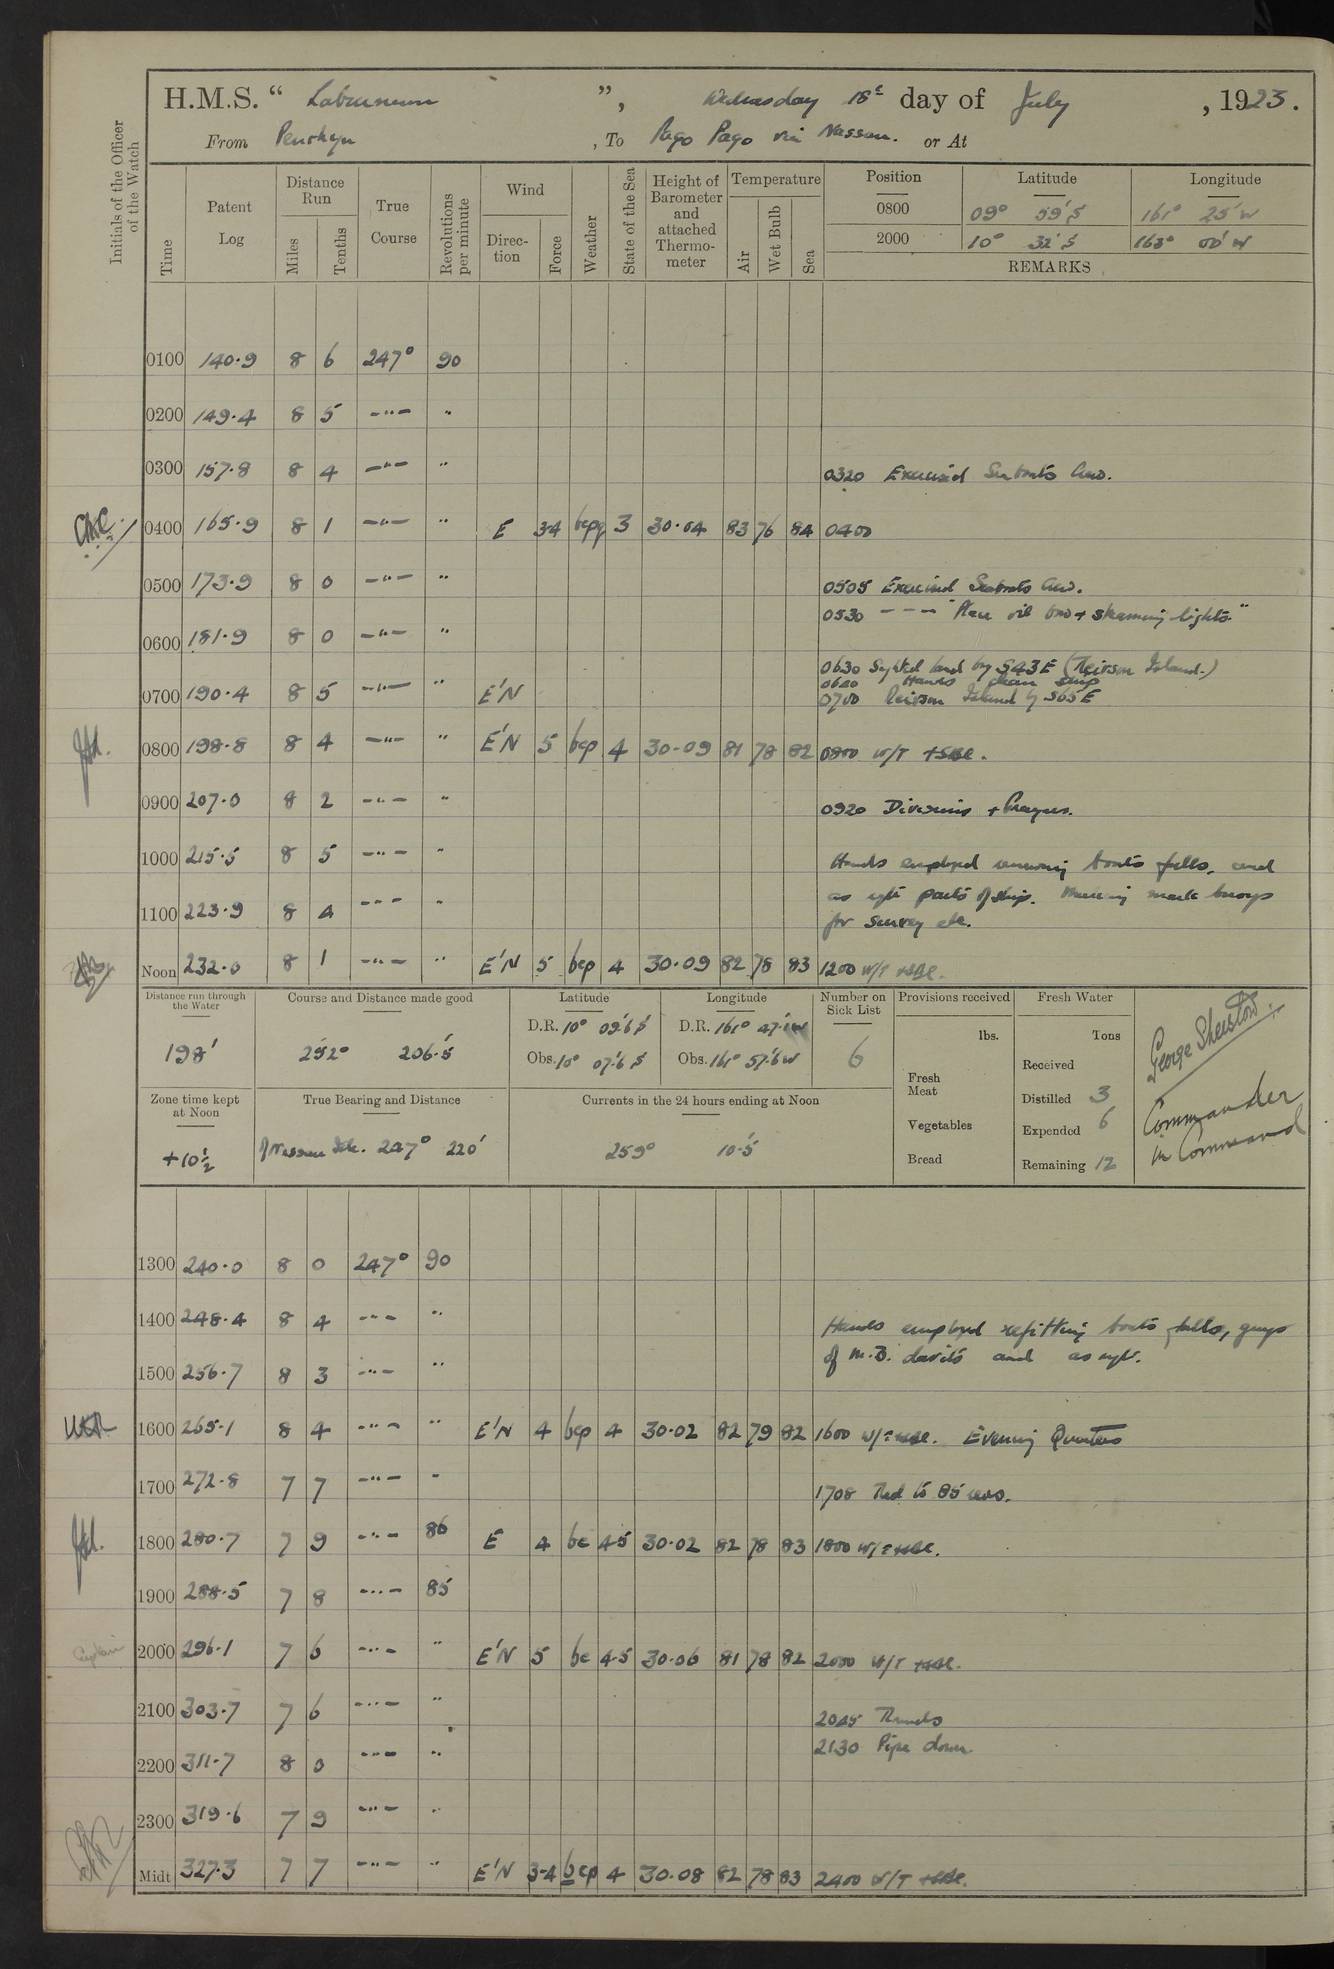 H.M.S. “ Laburnum ”, Wednesday 18th day of July , 1923.
From Penrhyn , To Pago Pago via Nassau. or At
Initials of the Officer of the Watch
Time
Patent Log
Distance Run
Miles
Tenths
True Course
Revolutions per minute
Wind
Direction
Force
Weather
State of the Sea
Height of Barometer and attached Thermometer
Temperature
Air
Wet Bulb
Sea
Position Latitude Longitude
0800 09° 59' S 161° 25' W
2000 10° 32' S 163° 00' W
REMARKS
0100 140.9 8 6 247° 90
0200 149.4 8 5 -"- "
0300 157.8 8 4 -"- " 0320 Exercised Seaboats Crew.
0400 165.9 8 1 -"- " E 3-4 bcpq 3 30.04 83 76 84 0400
0500 173.9 8 0 -"- " 0505 Exercised Seaboats Crew.
0530 - - - "Place oil bow + steaming lights"
0600 181.9 8 0 -"- "
0630 Sighted land by S43E (Reirson Island.)
0600 Hands clean ship
0700 190.4 8 5 -"- " E'N 0700 Reirson Island by S65E
0800 198.8 8 4 -"- " E'N 5 bcp 4 30.09 81 78 82 0800 W/T
0900 207.0 8 2 -"- " 0920 Divisions + Prayers.
1000 215.5 8 5 -"- " Hands employed renewing boats falls, and
as reqte parts of ship. Making mark buoys
1100 223.9 8 4 -"- "
for survey etc.
Noon 232.0 8 1 -"- " E'N 5 bcp 4 30.09 82 78 83 1200 W/T
Distance run through the Water
198'
Course and Distance made good
252° 206.5'
Latitude
D.R. 10° 09.6' S
Obs. 10° 07.6' S
Longitude
D.R. 161° 47.1' W
Obs. 161° 57.6' W
Number on Sick List
6
Provisions received
lbs.
Fresh Meat
Vegetables
Bread
Fresh Water
Tons
Received
Distilled 3
Expended 6
Remaining 12
George Sherston
Commander
in Command
Zone time kept at Noon
+10½
True Bearing and Distance
of Nassau Isle. 247° 220'
Currents in the 24 hours ending at Noon
259° 10.5'
1300 240.0 8 0 247° 90
1400 248.4 8 4 -"- " Hands employed refitting boats falls, guys
of M.B. davits and as reqte.
1500 256.7 8 3 -"- "
1600 265.1 8 4 -"- " E'N 4 bcp 4 30.02 82 79 82 1600 W/T Evening Quarters
1700 272.8 7 7 -"- " 1708 Red to 85 revs.
1800 280.7 7 9 -"- 86 E 4 bc 4-5 30.02 82 78 83 1800 W/T
1900 288.5 7 8 -"- 85
2000 296.1 7 6 -"- " E'N 5 bc 4-5 30.06 81 78 82 2000 W/T
2100 303.7 7 6 -"- " 2045 Rounds
2130 Pipe down.
2200 311.7 8 0 -"- "
2300 319.6 7 9 -"- "
Midt 327.3 7 7 -"- " E'N 3-4 bcp 4 30.08 82 78 83 2400 W/T